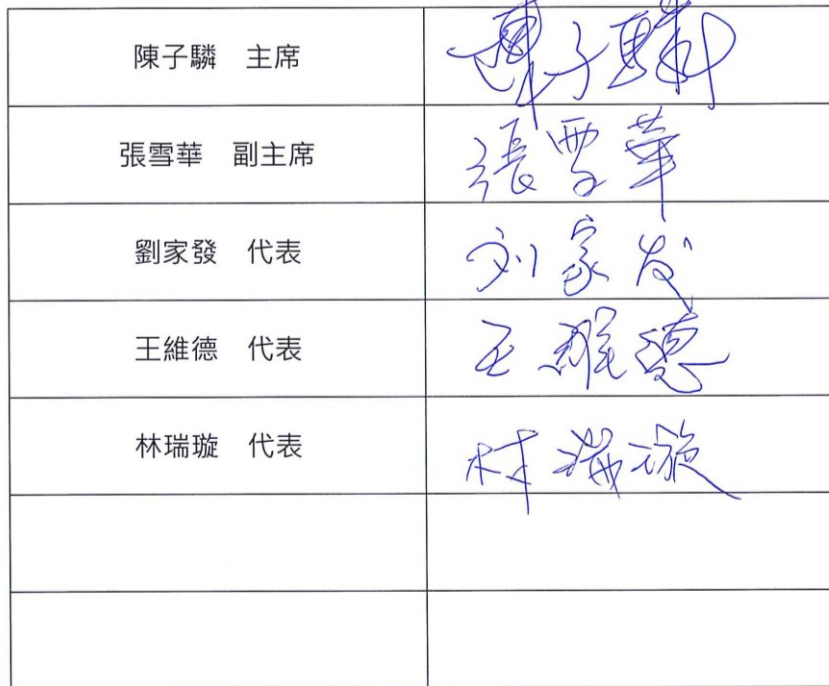 陳子驎 主席 陳子驎
張雪華 副主席 張雪華
劉家發 代表 刘家发
王維德 代表 王維德
林瑞璇 代表 林瑞璇